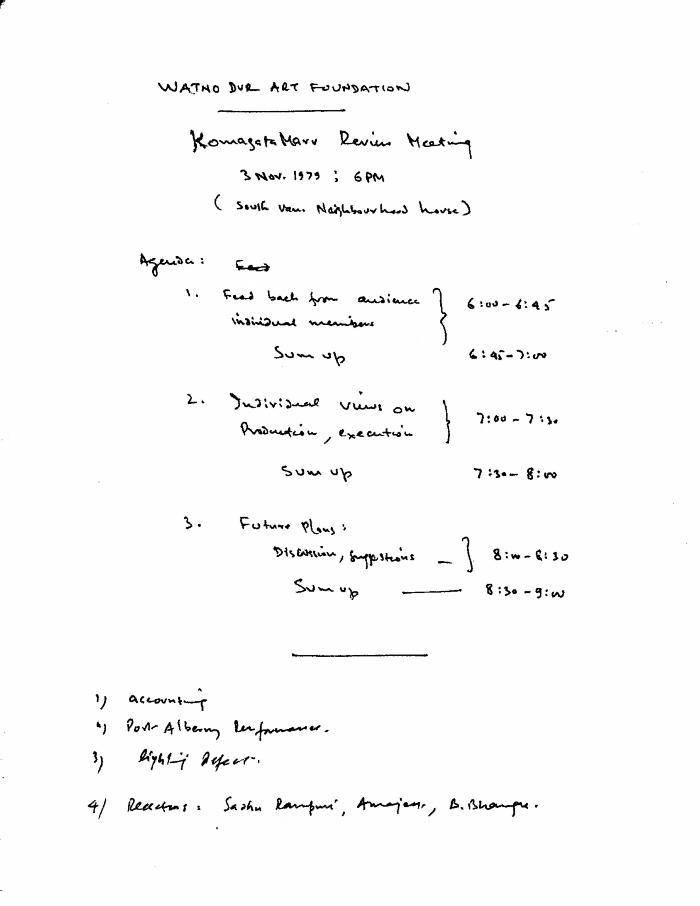 WATNO DUR ART FOUNDATION
Komagata Maru Review Meeting
3 Nov. 1979 ; 6 PM
( South Van. Neighbourhood house )
Agenda : Feed
1. Feed back from audience } 6:00 - 6:45
individual members
Sum up 6:45 - 7:00
2. Individual views on } 7:00 - 7:30
Production, execution
Sum up 7:30 - 8:00
3. Future Plans :
Discussion, suggestions — ] 8:00 - 8:30
Sum up —— 8:30 - 9:00
1) accounting
2) Post-Alberny Performance.
3) lighting defect.
4/ Reactions : Sadhu Rampuri, B. Bhangu.